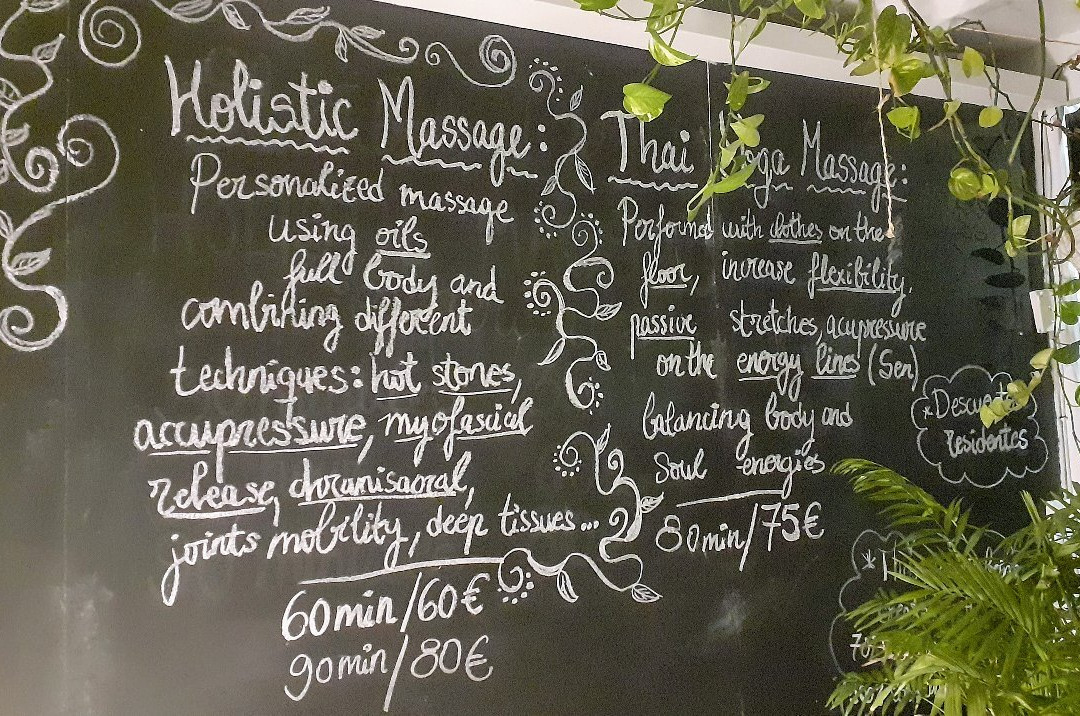 Holistic Massage:
Personalized massage
using oils
full body and
combining different
techniques: hot stones,
accupressure, myofascial
release, chranisacral,
joints mobility, deep tissues...
60min/60€
90min/80€
Thai Yoga Massage:
Performed with clothes on the
floor, increase flexibility,
passive stretches, acupressure
on the energy lines (Sen)
balancing body and
Soul energies
80min/75€
*Descuentos
residentes